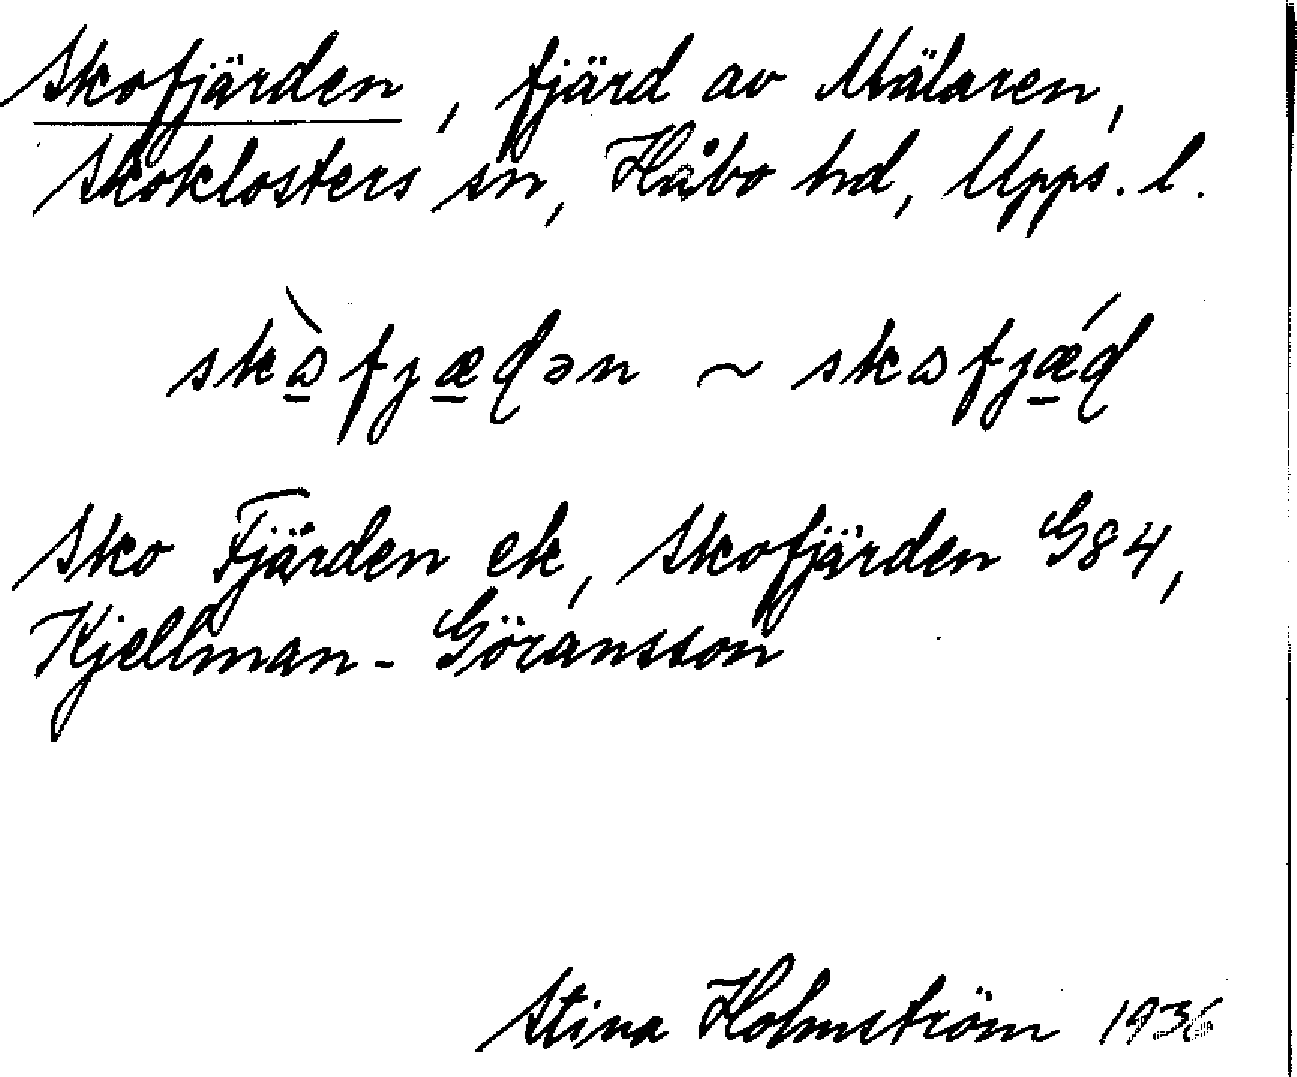 Skofjärden, fjärd av Mälaren,
Skoklosters sn, Håbo hd, Upps. l.
skɷ̀fjæɖən ~ skɷfjǽɖ
Sko Fjärden ek, Skofjärden G84,
Kjellman-Göransson
Stina Holmström 1936